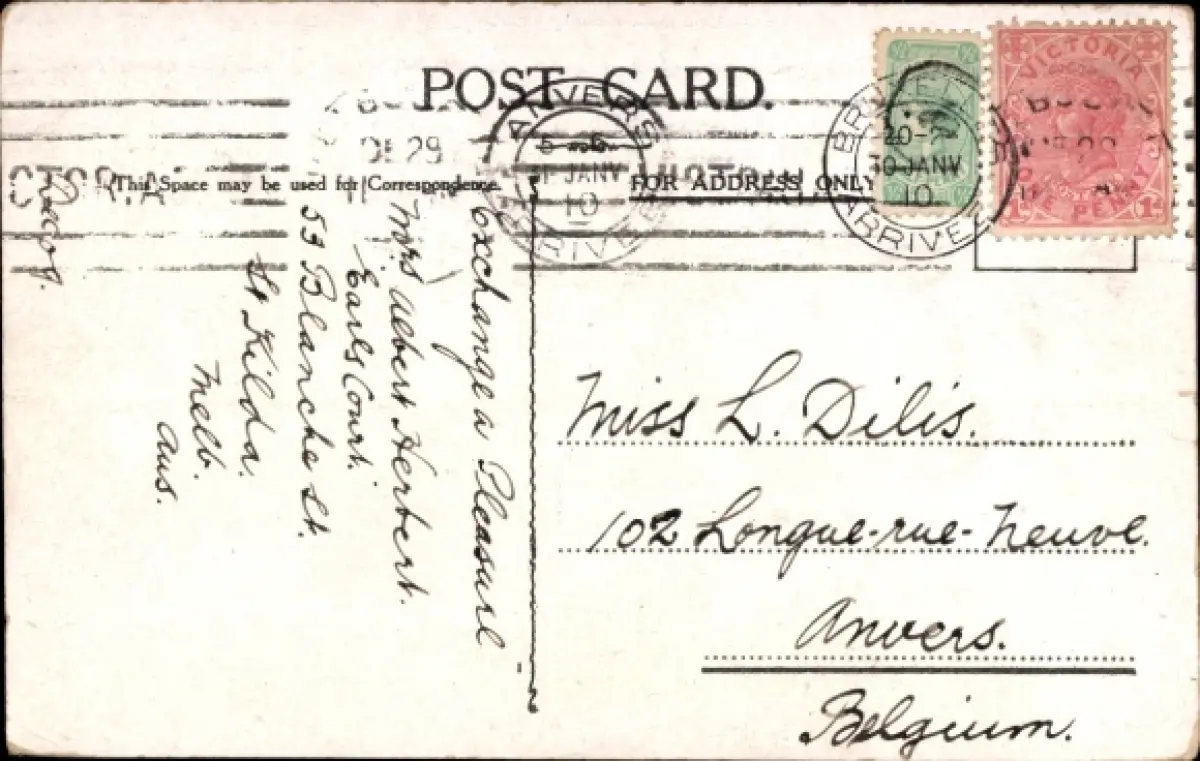 POST CARD.
This Space may be used for Correspondence.
FOR ADDRESS ONLY
exchange a Pleasure
Mrs Albert Herbert.
Earls Court.
53 Blanche St.
St Kilda.
Melb.
Aus.
Miss L. Dilis.
102 Longue-rue-Neuve.
Anvers.
Belgium.
ANVERS
5-6
31 JANV
10
ARRIVEE
20-
30 JANV
10
ARRIVEE
VICTORIA
ONE PENNY